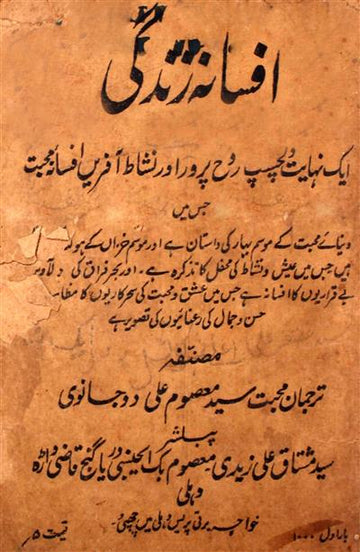 افسانۂ زندگی
ایک نہایت دلچسپ روح پرور اور نشاط آفریں افسانۂ محبت
جس میں
دنیائے محبت کے موسم بہار کی داستان ہے اور موسم خزاں کے ہولہ
ہیں جس میں عیش و نشاط کی محفل کا تذکرہ ہے ۔ اور ہجر فراق کی دلاوہ
بے قراریوں کا افسانہ ہے جس میں عشق و محبت کی سحر کاریوں کا مظاہر
حسن و جمال کی رعنائیوں کی تصویر ہے
مصنفہ
ترجمان محبت سید معصوم علی دوجانوی
پبلشر
سید مشتاق علی زیدی معصوم بک ایجنسی دریا گنج قاضی واڑہ
دہلی
خواجہ برقی پریس دہلی میں چھپی
بار اول ۱۰۰۰
قیمت ۵